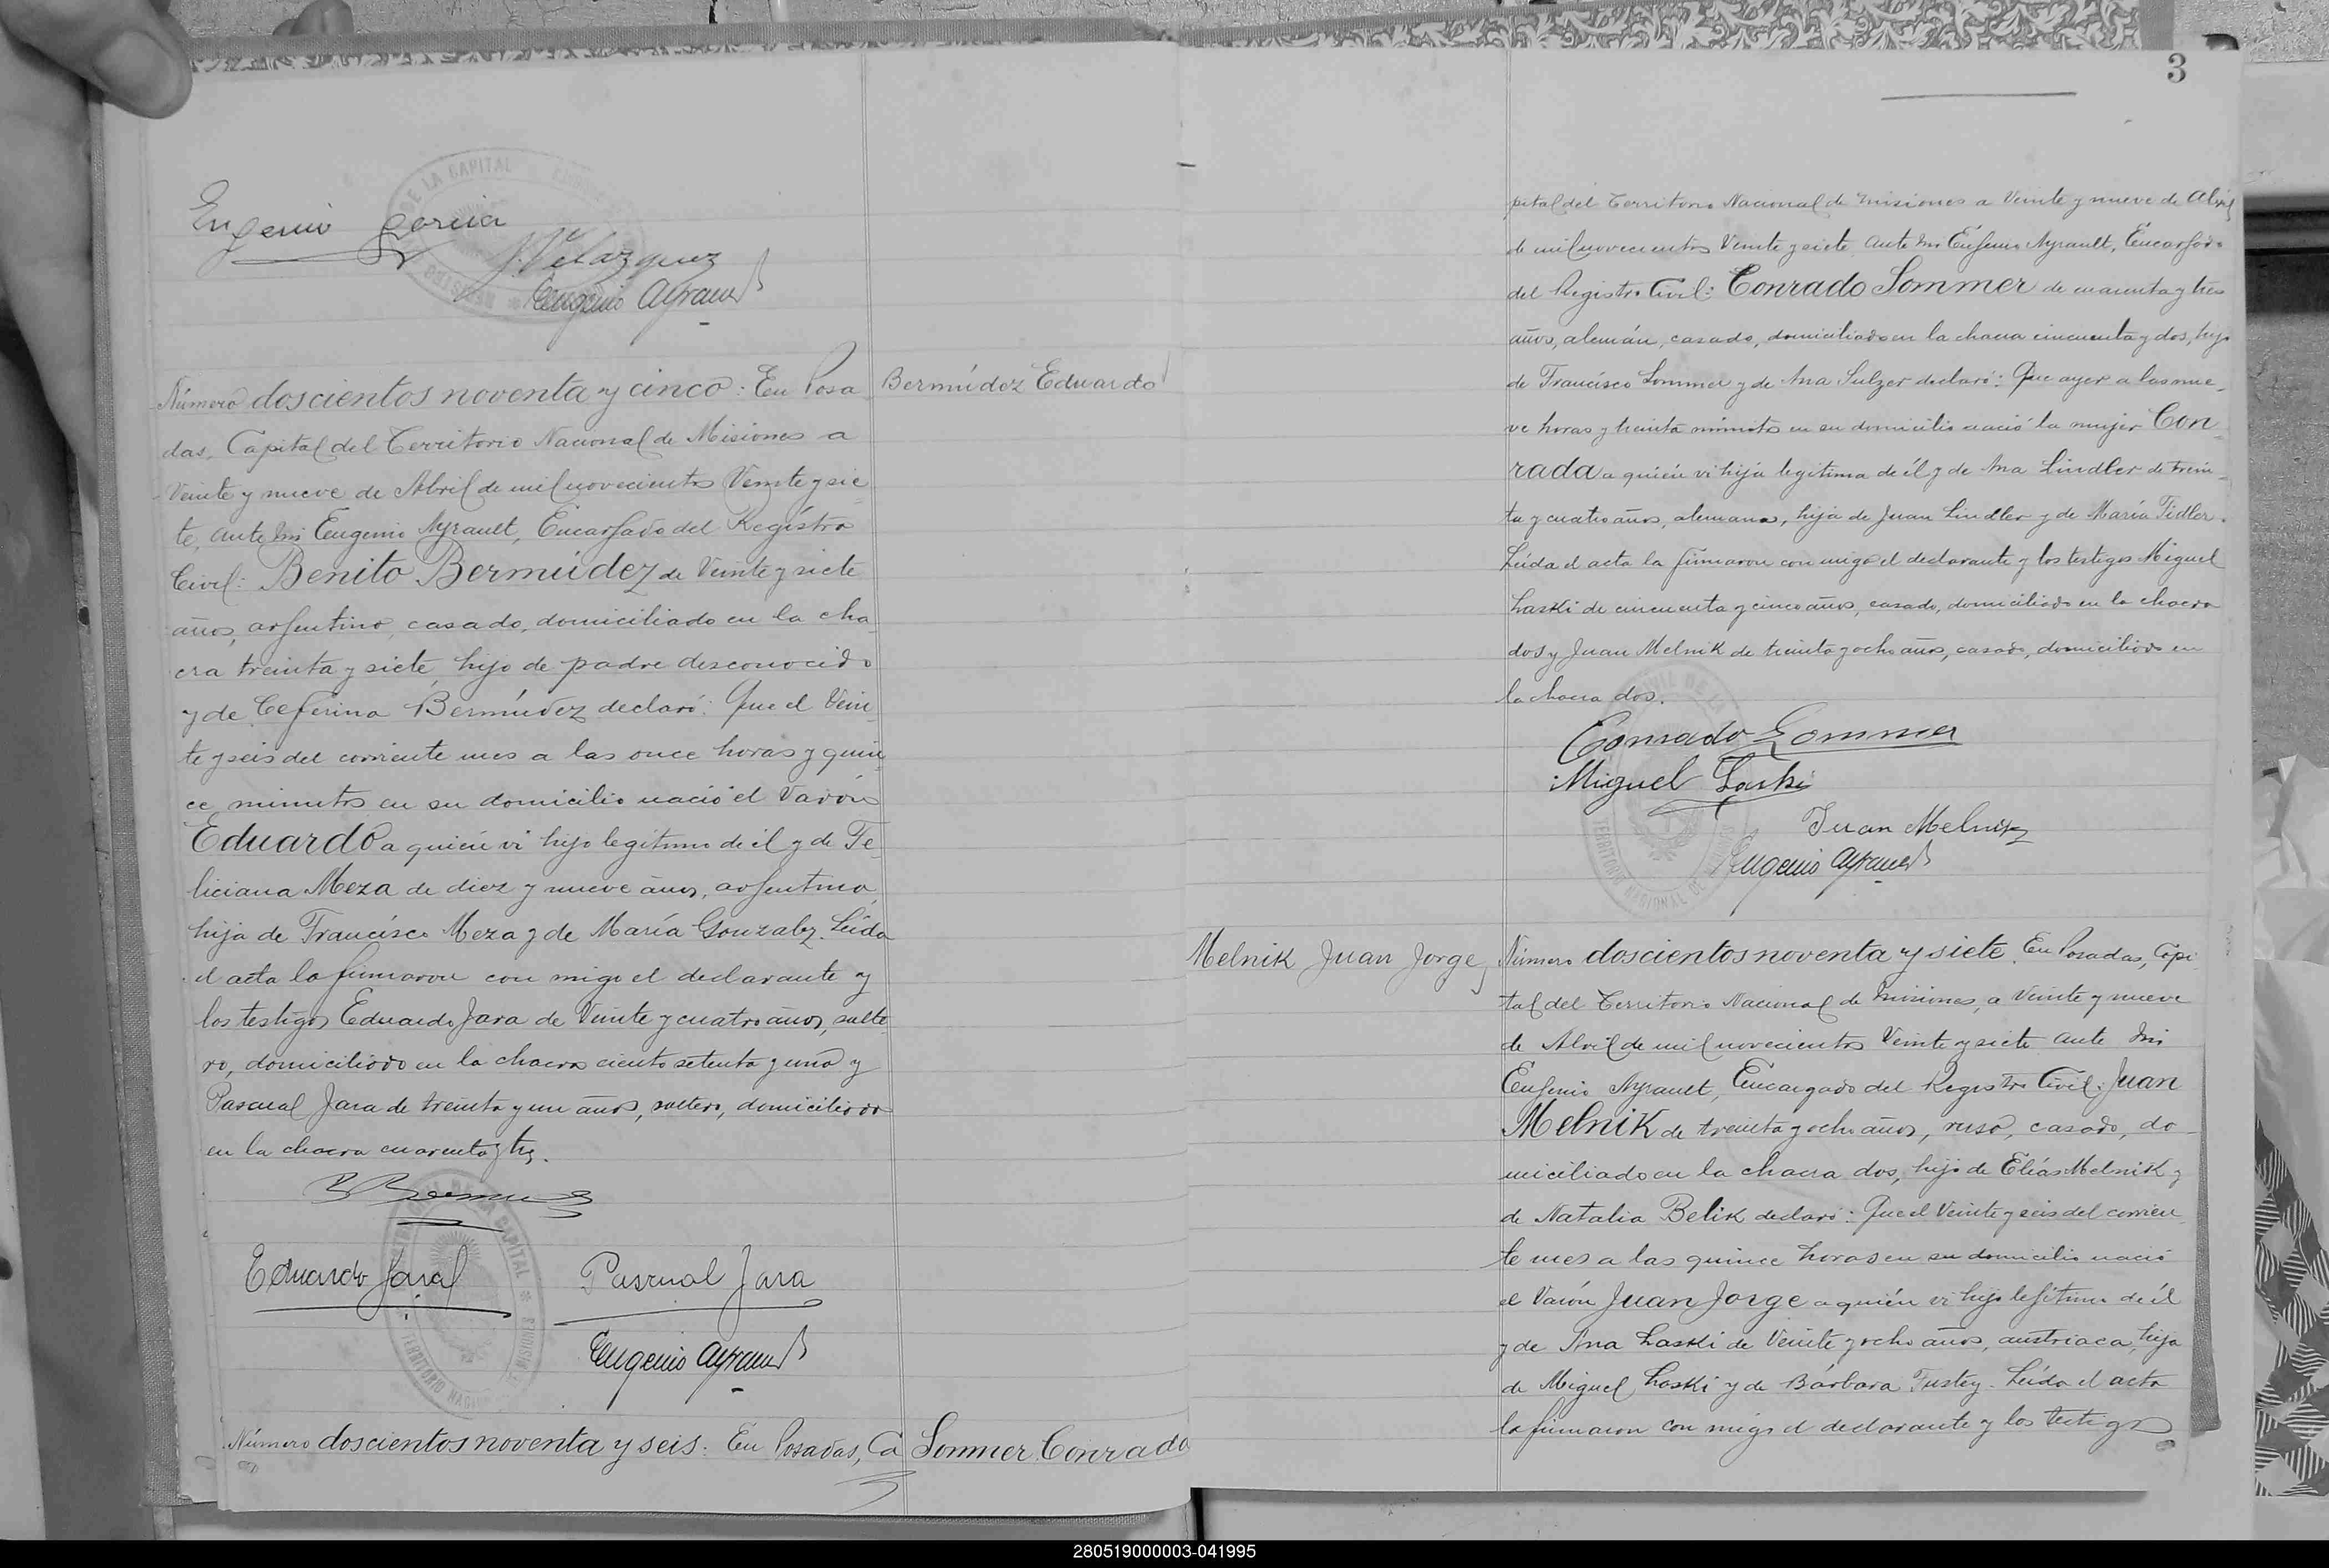 Eugenio Garcia
J. Velazquez
Eugenio Ayrault
Número doscientos noventa y cinco: En Posa
Bermúdez Eduardo
das, Capital del Territorio Nacional de Misiones a
Veinte y nueve de Abril de mil novecientos Veinte y sie
te, ante mi Eugenio Ayrault, Encargado del Registro
Civil: Benito Bermúdez de Veinte y siete
años, argentino, casado, domiciliado en la cha
cra treinta y siete, hijo de padre desconocido
y de Ceferina Bermúdez declaró: Que el Vein
te y seis del corriente mes a las once horas y quin
ce minutos en su domicilio nació el Varón
Eduardo a quién vi hijo legítimo de él y de Fe
liciana Meza de diez y nueve años, argentina,
hija de Francisco Meza y de María Gonzalez. Leída
el acta la firmaron con migo el declarante y
los testigos Eduardo Jara de Veinte y cuatro años, solte
ro, domiciliado en la chacra ciento setenta y una y
Pascual Jara de treinta y un años, soltero, domiciliado
en la chacra cuarenta y tres.
B Bermudez
Eduardo Jara Pascual Jara
Eugenio Ayrault
Número doscientos noventa y seis: En Posadas, Ca
Sommer Conrada
3
pital del Territorio Nacional de Misiones a Veinte y nueve de Abril
de mil novecientos Veinte y siete, ante mi Eugenio Ayrault, Encargado
del Registro Civil: Conrado Sommer de cuarenta y tres
años, alemán, casado, domiciliado en la chacra cincuenta y dos, hijo
de Francisco Sommer y de Ana Sulzer declaró: Que ayer a las nue
ve horas y treinta minutos en su domicilio nació la mujer Con
rada a quién vi hija legítima de él y de Ana Lindler de trein
ta y cuatro años, alemana, hija de Juan Lindler y de María Fidler.
Leída el acta la firmaron con migo el declarante y los testigos Miguel
Laski de cincuenta y cinco años, casado, domiciliado en la chacra
dos y Juan Melnik de treinta y ocho años, casado, domiciliado en
la chacra dos.
Conrado Sommer
Miguel Laski
Juan Melnik
Eugenio Ayrault
Melnik Juan Jorge
Número doscientos noventa y siete. En Posadas, Capi
tal del Territorio Nacional de Misiones, a Veinte y nueve
de Abril de mil novecientos Veinte y siete ante mi
Eugenio Ayrault, Encargado del Registro Civil: Juan
Melnik de treinta y ocho años, ruso, casado, do
miciliado en la chacra dos, hijo de Elías Melnik y
de Natalia Belik declaró: Que el Veinte y seis del corrien
te mes a las quince horas en su domicilio nació
el Varón Juan Jorge a quién vi hijo legítimo de él
y de Ana Laski de Veinte y ocho años, austriaca, hija
de Miguel Laski y de Bárbara Tustey. Leída el acta
la firmaron con migo el declarante y los testigos
280519000003-041995